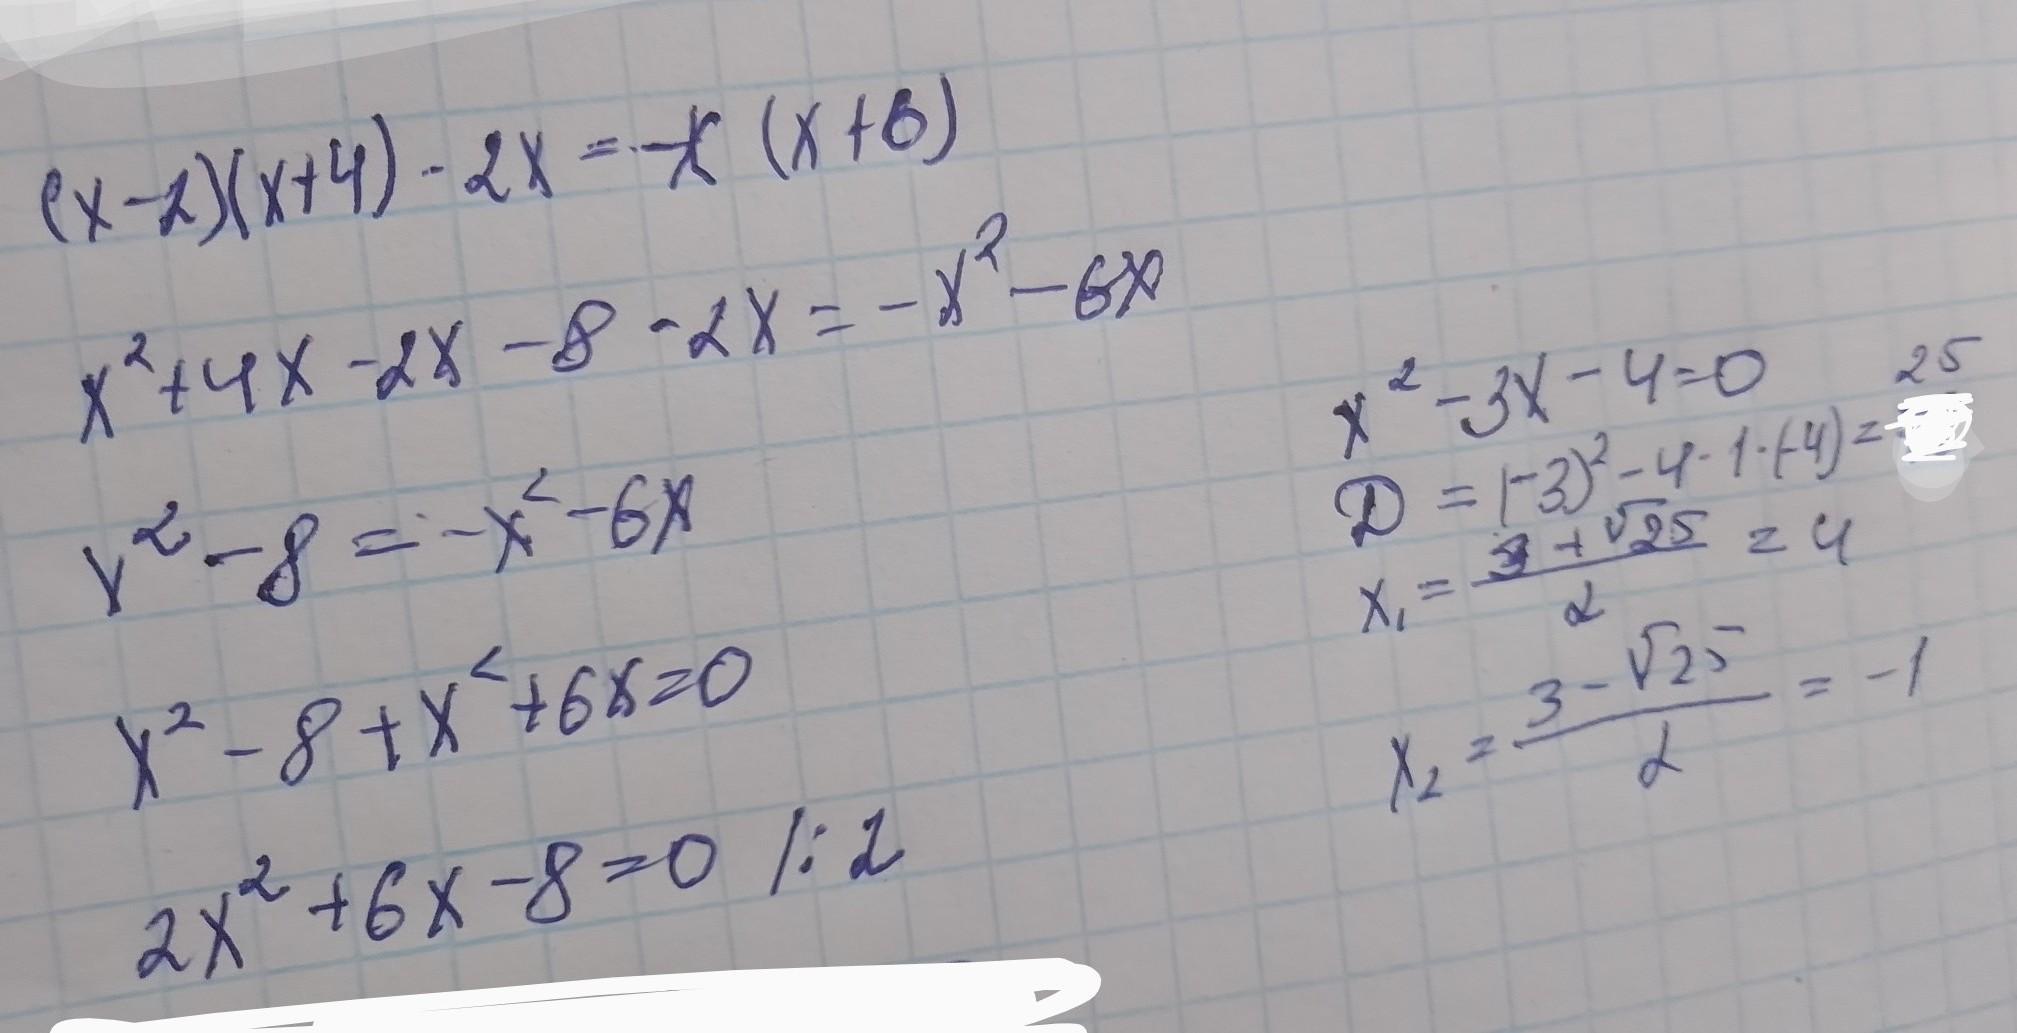 (x-2)(x+4)-2x=-x(x+6)
x²+4x-2x-8-2x=-x²-6x
x²-8=-x²-6x
x²-8+x²+6x=0
2x²+6x-8=0 /:2
x²-3x-4=0
D=(-3)²-4·1·(-4)=25
x₁=(3+√25)/2=4
x₂=(3-√25)/2=-1